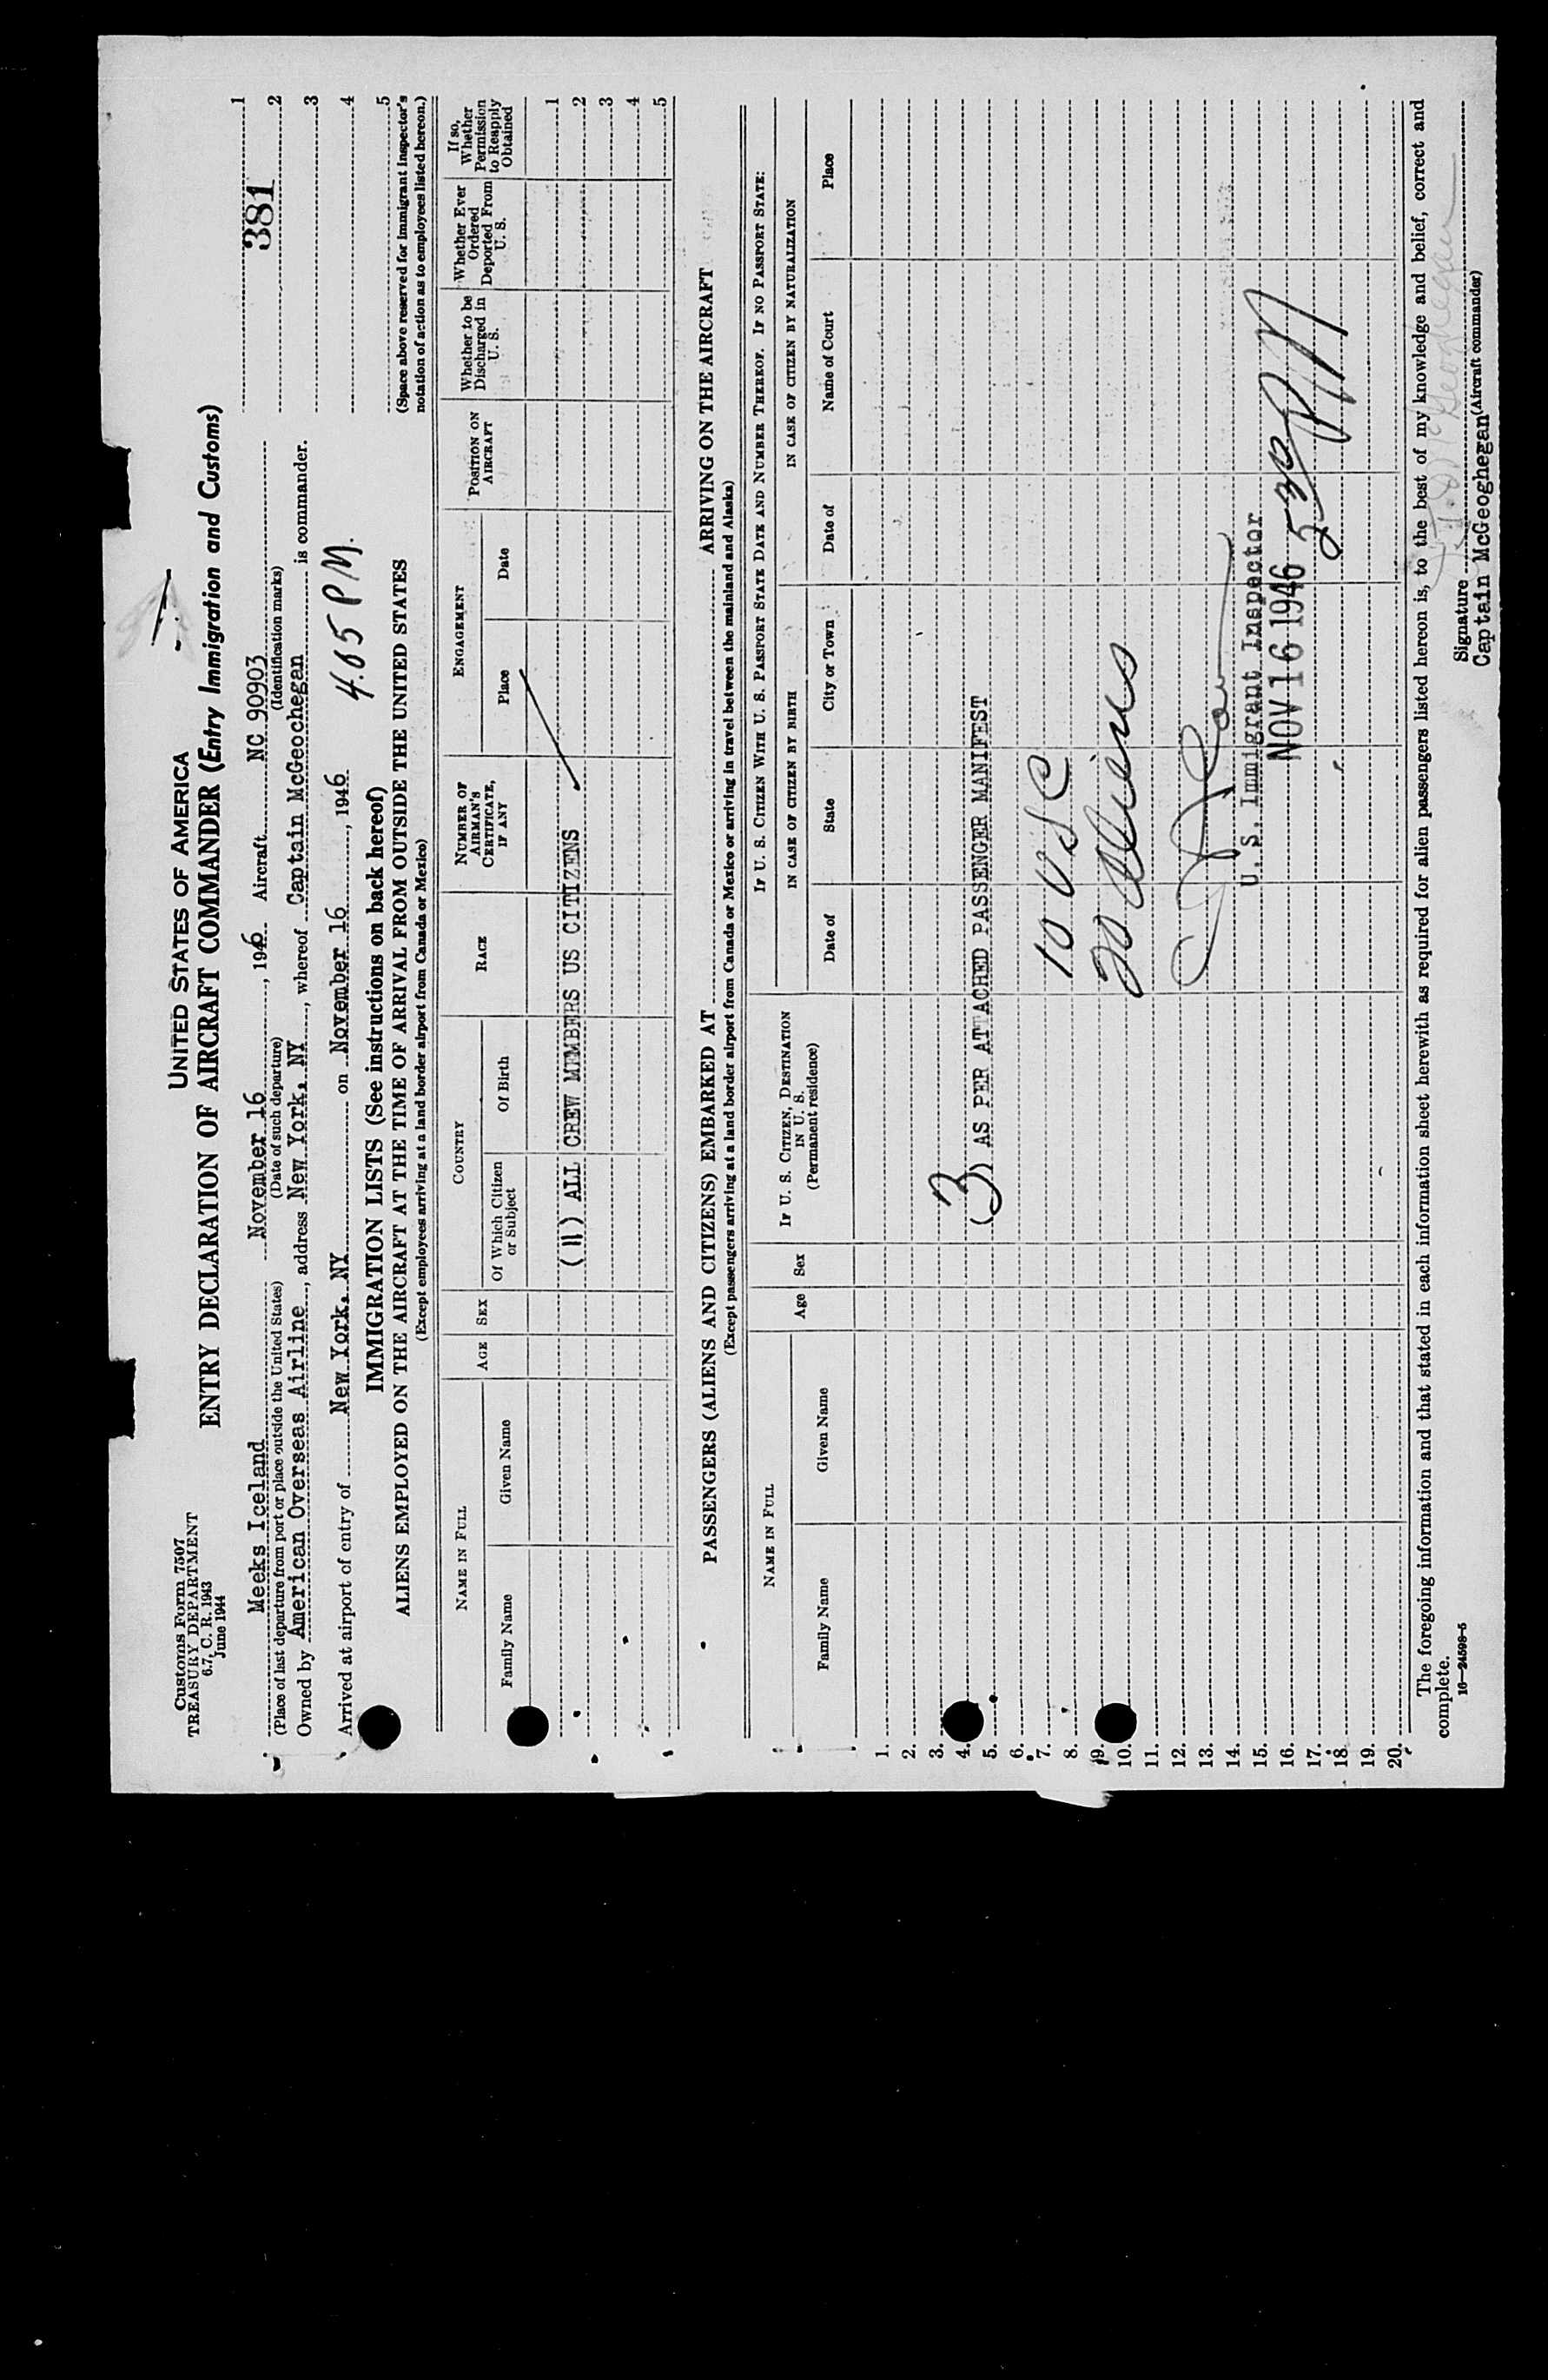 Customs Form 7507
TREASURY DEPARTMENT
6.7, C. R. 1943
June 1944
UNITED STATES OF AMERICA
ENTRY DECLARATION OF AIRCRAFT COMMANDER (Entry Immigration and Customs)
Meeks Iceland November 16, 1946 Aircraft NC 90903
(Place of last departure from port or place outside the United States) (Date of such departure) (Identification marks)
Owned by American Overseas Airline, address New York, NY, whereof Captain McGeochegan is commander.
Arrived at airport of entry of New York, NY on November 16, 1946 4.05 PM.
1
381
2
3
4
5
(Space above reserved for immigrant inspector's
notation of action as to employees listed hereon.)
IMMIGRATION LISTS (See instructions on back hereof)
ALIENS EMPLOYED ON THE AIRCRAFT AT THE TIME OF ARRIVAL FROM OUTSIDE THE UNITED STATES
(Except employees arriving at a land border airport from Canada or Mexico)
NAME IN FULL
Family Name Given Name
AGE
SEX
COUNTRY
Of Which Citizen or Subject Of Birth
RACE
NUMBER OF AIRMAN'S CERTIFICATE, IF ANY
ENGAGEMENT
Place Date
POSITION ON AIRCRAFT
Whether to be Discharged in U. S.
Whether Ever Ordered Deported From U. S.
If so, Whether Permission to Reapply Obtained
1
(11) ALL CREW MEMBERS US CITIZENS
2
3
4
5
PASSENGERS (ALIENS AND CITIZENS) EMBARKED AT ARRIVING ON THE AIRCRAFT
(Except passengers arriving at a land border airport from Canada or Mexico or arriving in travel between the mainland and Alaska)
NAME IN FULL
Family Name Given Name
Age
Sex
IF U. S. CITIZEN, DESTINATION IN U. S.
(Permanent residence)
IF U. S. CITIZEN WITH U. S. PASSPORT STATE DATE AND NUMBER THEREOF. IF NO PASSPORT STATE:
IN CASE OF CITIZEN BY BIRTH IN CASE OF CITIZEN BY NATURALIZATION
Date of State City or Town Date of Name of Court Place
1.
2.
3.
4.
(3) AS PER ATTACHED PASSENGER MANIFEST
5.
6.
7.
10 USC
8.
9.
20 Aliens
10.
11.
12.
13.
14.
U. S. Immigrant Inspector
15.
NOV 16 1946 530 PM
16.
17.
18.
19.
20.
The foregoing information and that stated in each information sheet herewith as required for alien passengers listed hereon is, to the best of my knowledge and belief, correct and
complete.
16—24598-5
Signature
Captain McGeoghegan (Aircraft commander)